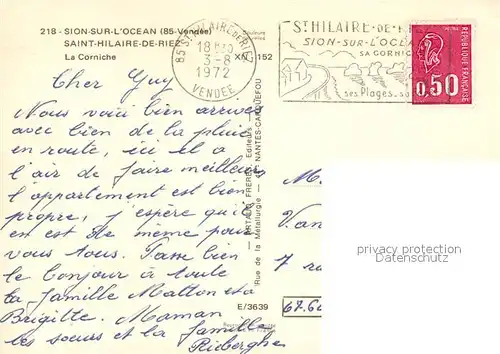 218 - SION-SUR-L'OCEAN (85-Vendée)
SAINT-HILAIRE-DE-RIEZ
La Corniche
XN 152
85 ST HILAIRE DE RIEZ
18H30
3-8
1972
VENDEE
ST HILAIRE-DE-R
SION-SUR-L'OCEAN
SA CORNIC
ses Plages. s
REPUBLIQUE FRANÇAISE
0,50
Cher Guy
Nous voici bien arrivés
avec bien de la pluie
en route, ici il a
l'air de faire meilleur
l'appartement est bien
propre, j'espère qu'il
en est de même pour
vous tous. Passe bien
le bonjour à toute
la famille Matton et a
Brigitte. Maman
les soeurs et la famille
Rieberghe
ARTAUD FRERES Editeurs
Rue de la Métallurgie - 44 NANTES-CARQUEFOU
E/3639
M.
Van
7 r
67.60
privacy protection
Datenschutz